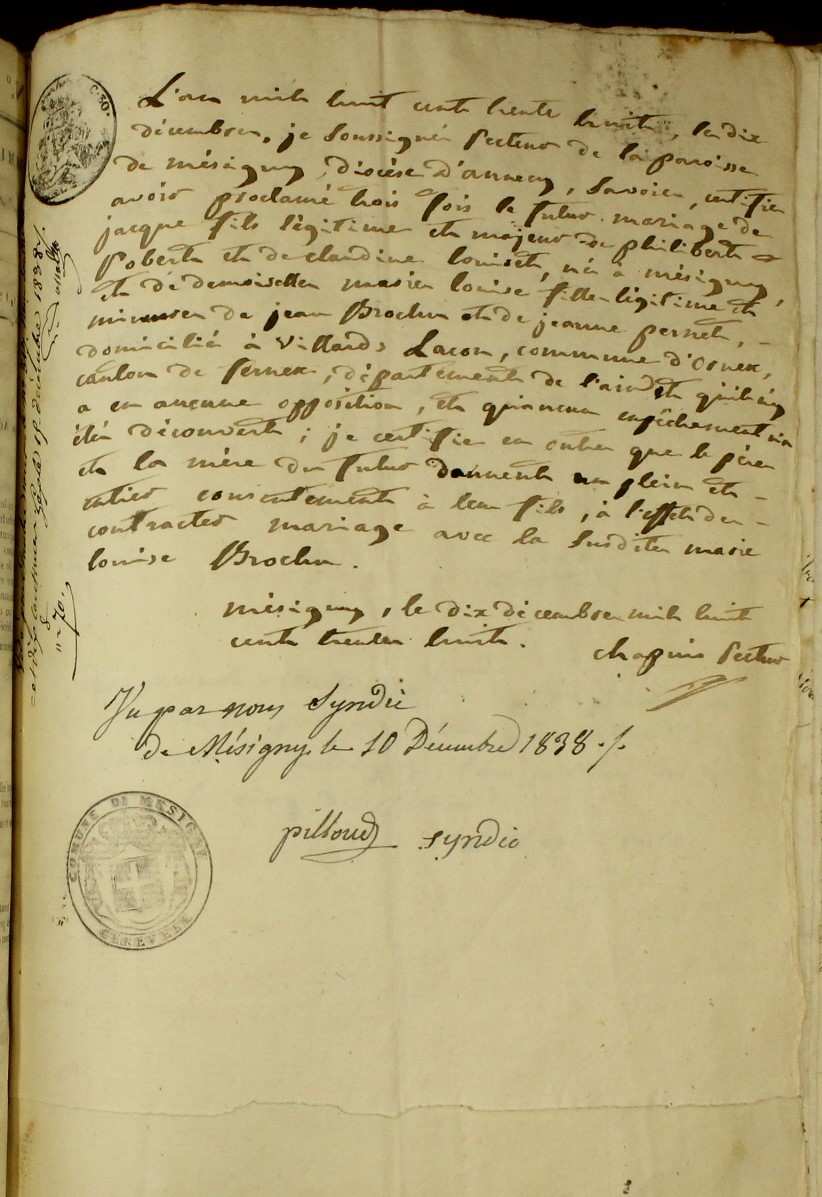 C. 50.
L'an mil huit cent trente huit, le dix
décembre, je soussigné Recteur de la paroisse
de mésigny, diocèse d'annecy, Savoie, certifie
avoir proclamé trois fois le futur mariage de
jacque fils légitime et majeur de philibert
Robert et de claudine louiset, né à mésigny,
et de demoiselle marie louise fille légitime et
mineure de jean Brochu et de jeanne pernet,
domicilié à Villards Lacon, commune d'Ornex,
canton de fernex, département de l'ain et qu'il n'y
a eu aucune opposition, et qu'aucun empêchement n'a
été découvert ; je certifie en outre que le père
et la mère du futur donnent un plein et
entier consentement à leur fils, à l'effet de
contracter mariage avec la susdite marie
louise Brochu.
mésigny, le dix décembre mil huit
cent trente huit.
chapuis Recteur
Vu par nous Syndic
de Mésigny le 10 Décembre 1838 ./.
pilloud syndic
COMUNE DI MESIGNY
GENEVESE
décembre 1838
n 70.